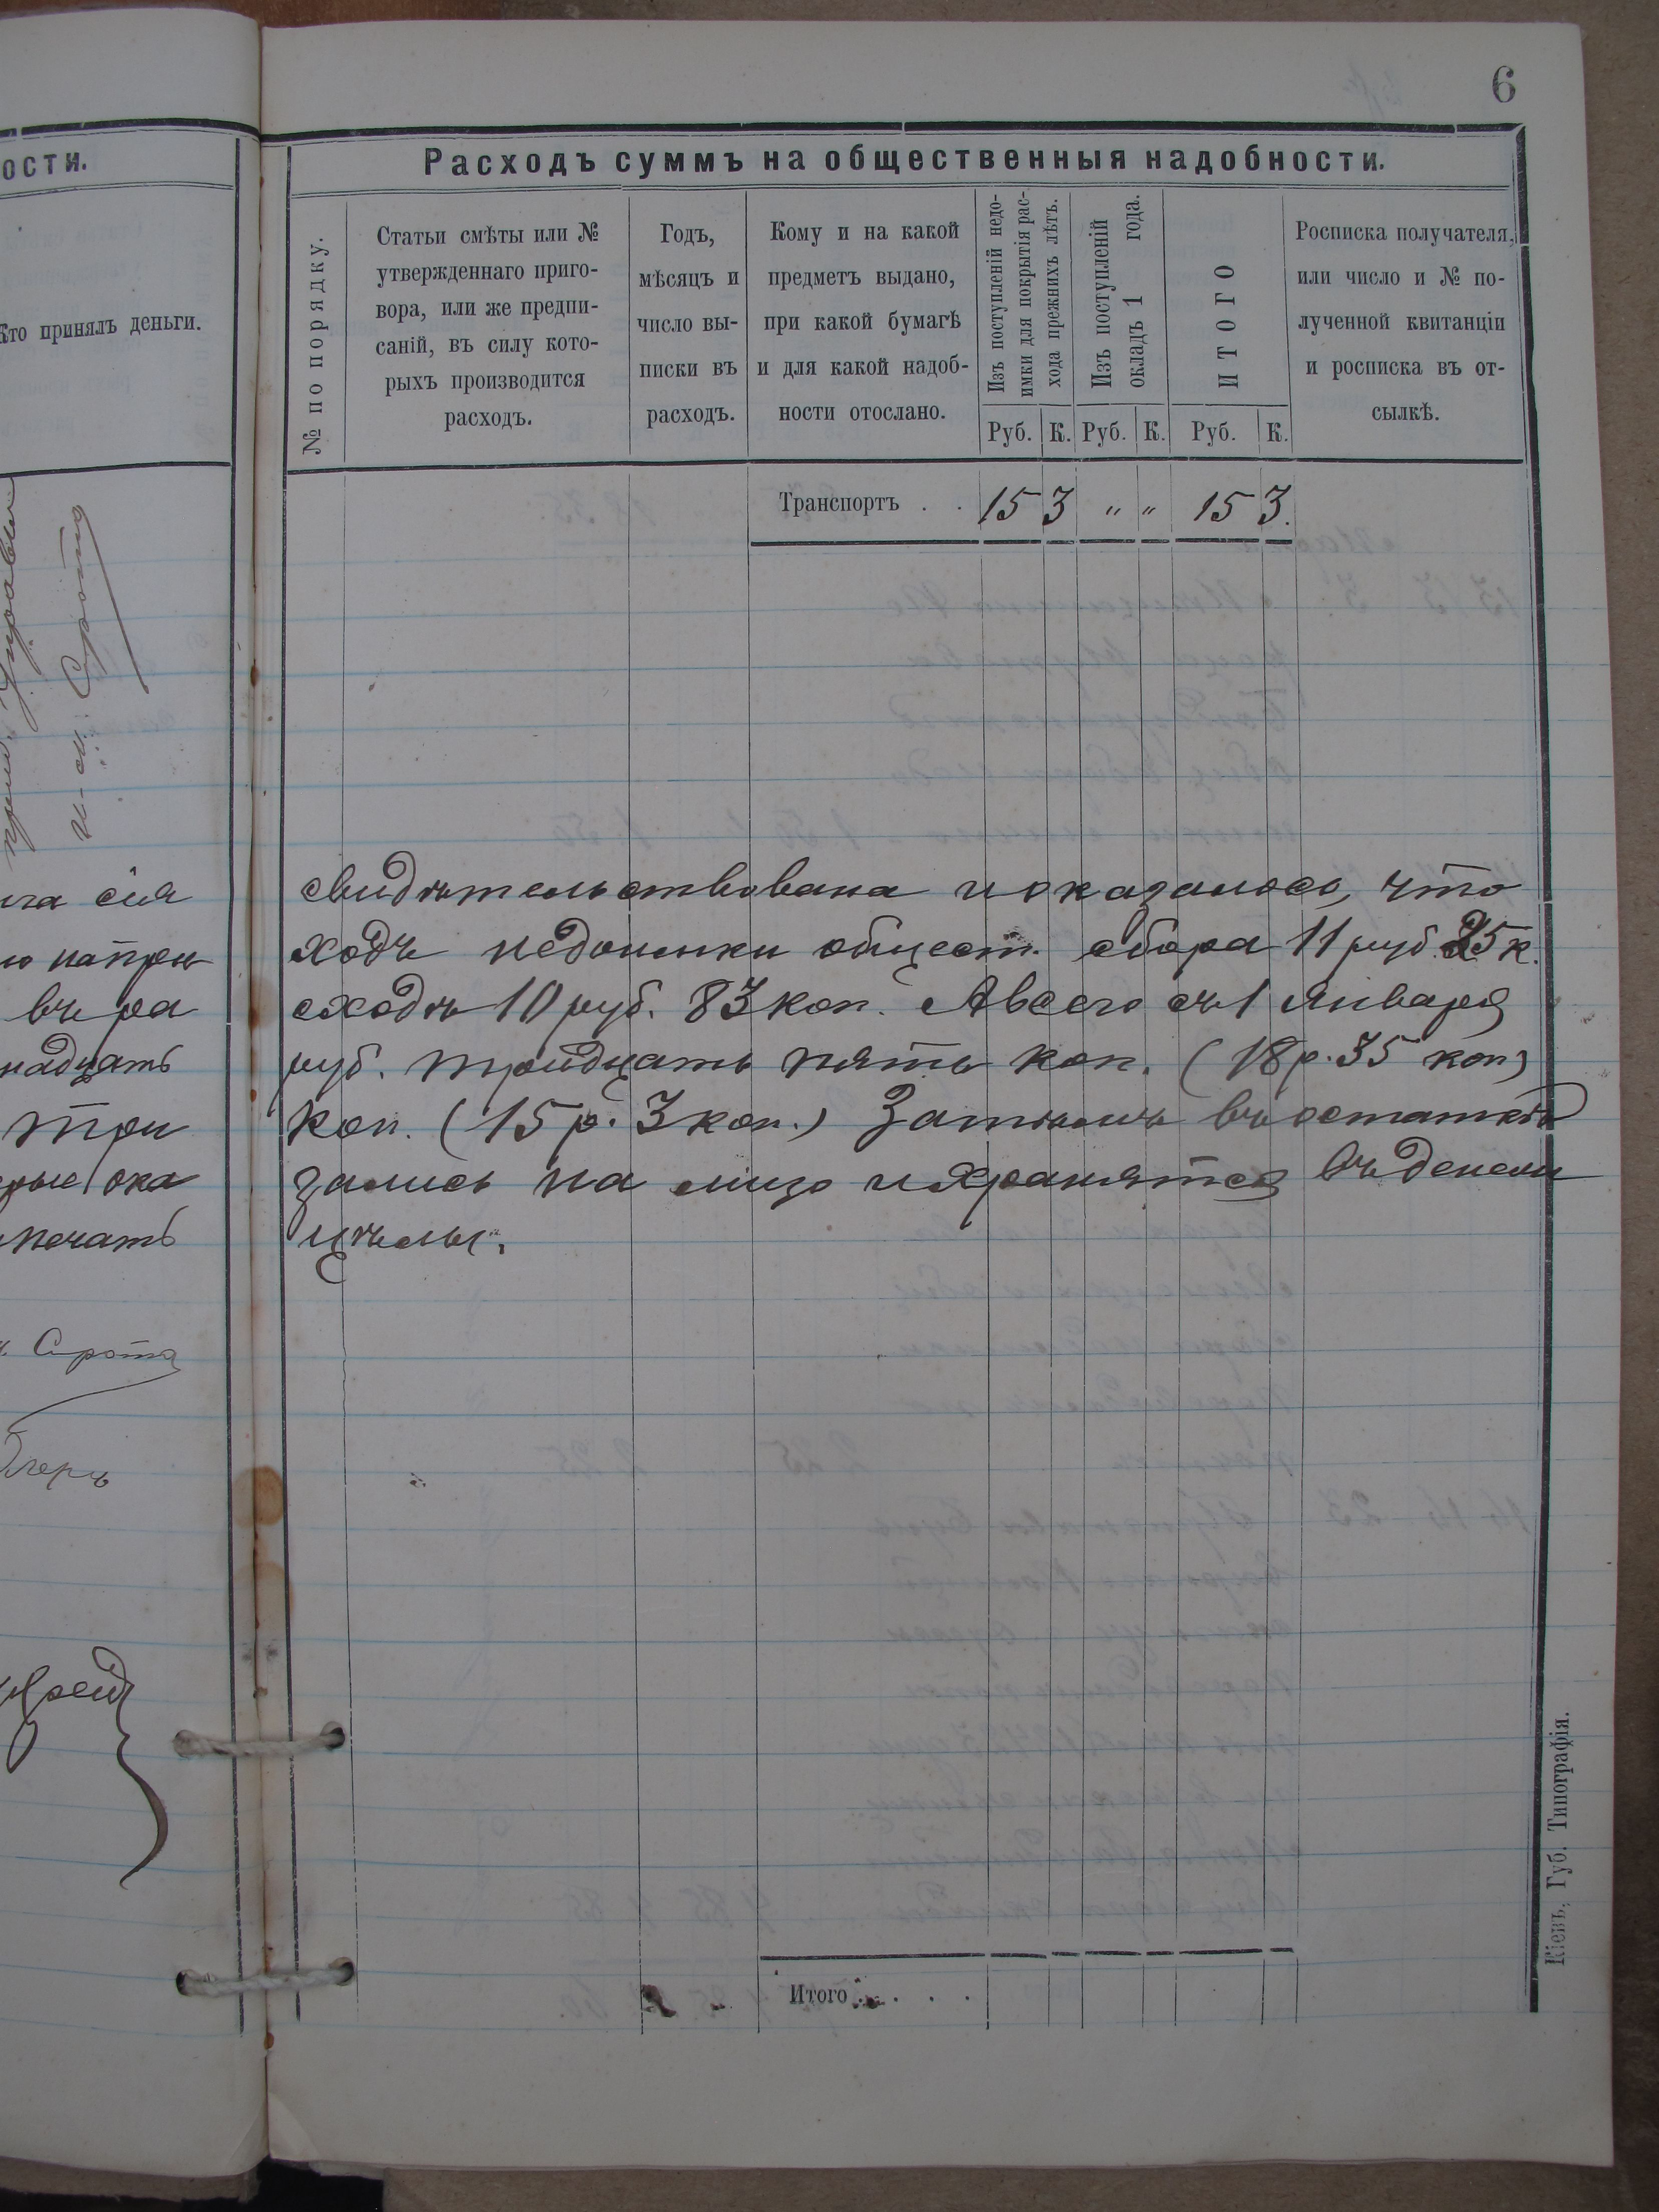 6
ости.
Кто принялъ деньги.
Сирота
ига сія
въ ра
надцать
три
ока
печать
Сирота
Расходъ суммъ на общественныя надобности.
№ по порядку.
Статьи смѣты или №
утвержденнаго приго-
вора, или же предпи-
саній, въ силу кото-
рыхъ производится
расходъ.
Годъ,
мѣсяцъ и
число вы-
писки въ
расходъ.
Кому и на какой
предметъ выдано,
при какой бумагѣ
и для какой надоб-
ности отослано.
Изъ поступленій недо-
имки для покрытія рас-
хода прежнихъ лѣтъ.
Изъ поступленій
окладъ 1 года.
ИТОГО
Росписка получателя,
или число и № по-
лученной квитанціи
и росписка въ от-
сылкѣ.
Руб. К. Руб. К. Руб. К.
Транспортъ . . 15 3 " " 15 3.
свидѣтельствована и оказалось, что
ходъ недоимки общест. сбора 11 руб. 25 к.
сходъ 10 руб. 83 коп. А всего съ 1 Января
руб. тридцать пять коп. (18 р. 35 коп)
коп. (15 р. 3 коп.) Затѣмъ въ остаткѣ
зались на лицо и хранятся въ денеж
цѣлы.
Итого . . . . .
Кіевъ. Губ. Типографія.